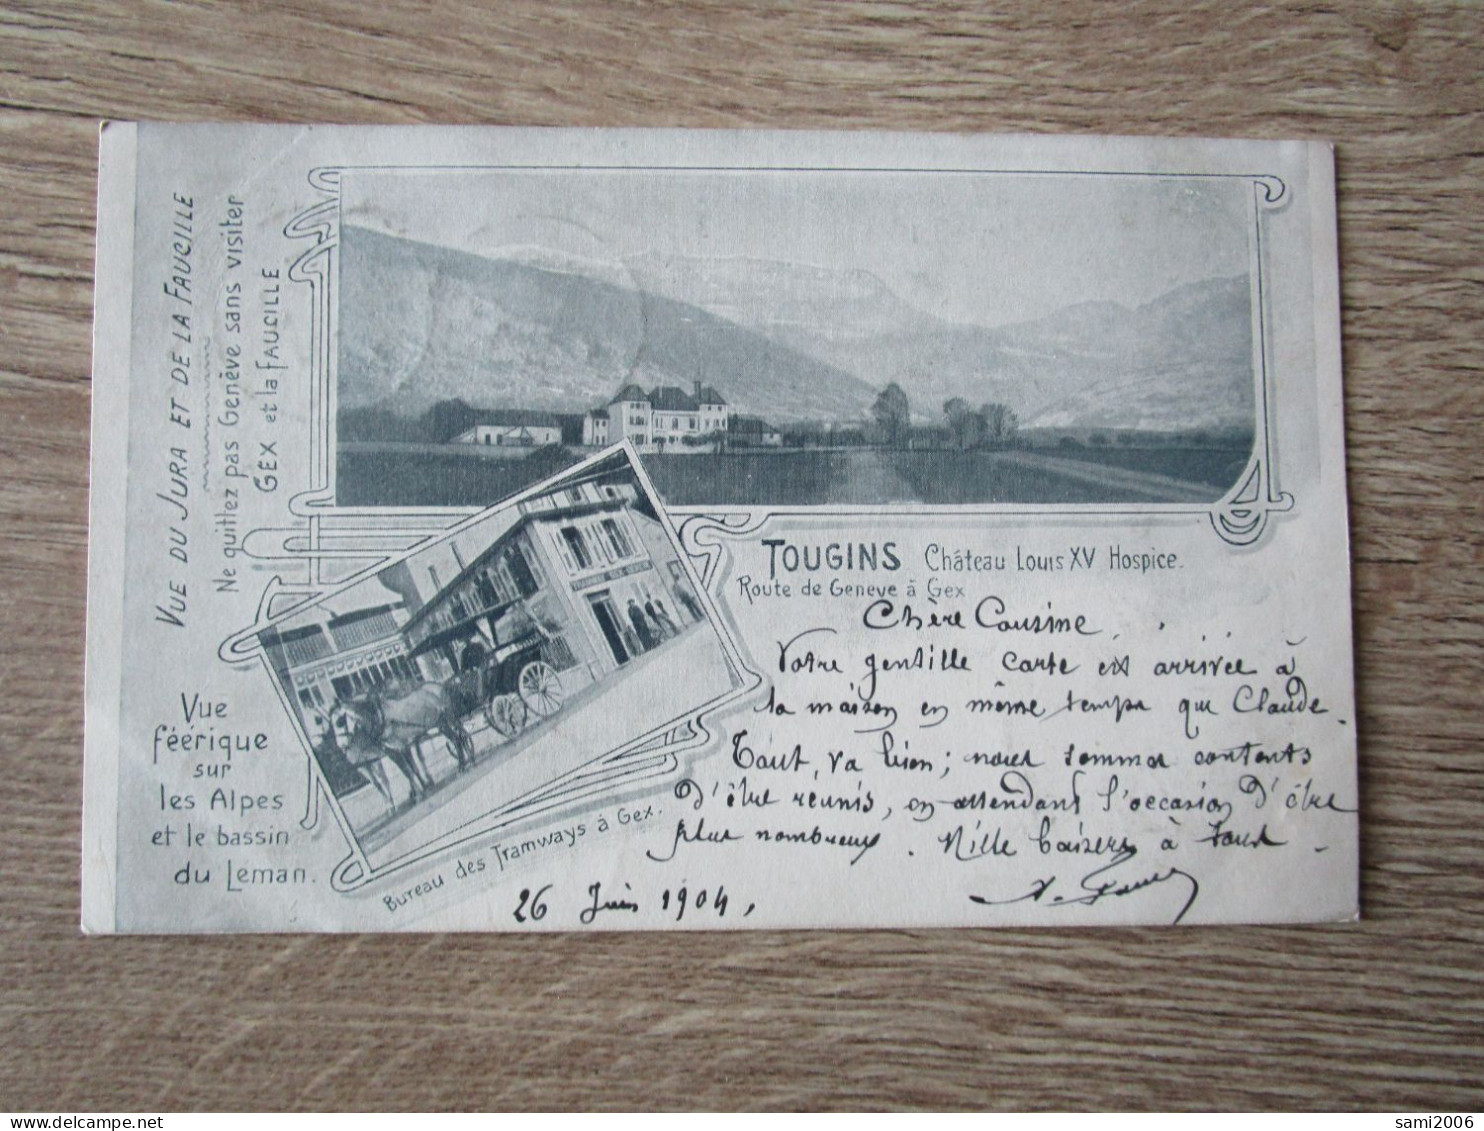 VUE DU JURA ET DE LA FAUCILLE
Ne quittez pas Genève sans visiter
GEX et la FAUCILLE
Vue
féérique
sur
les Alpes
et le bassin
du Leman.
Bureau des Tramways à Gex.
TOUGINS Château Louis XV Hospice.
Route de Geneve à Gex
Chère Cousine
Votre gentille carte est arrivée à
la maison en même temps que Claude.
Tout va bien ; nous sommes contents
d'être reunis, en attendant l'occasion d'être
plus nombreux. Mille baisers à tous.
26 Juin 1904,
delcampe.net
sami2006